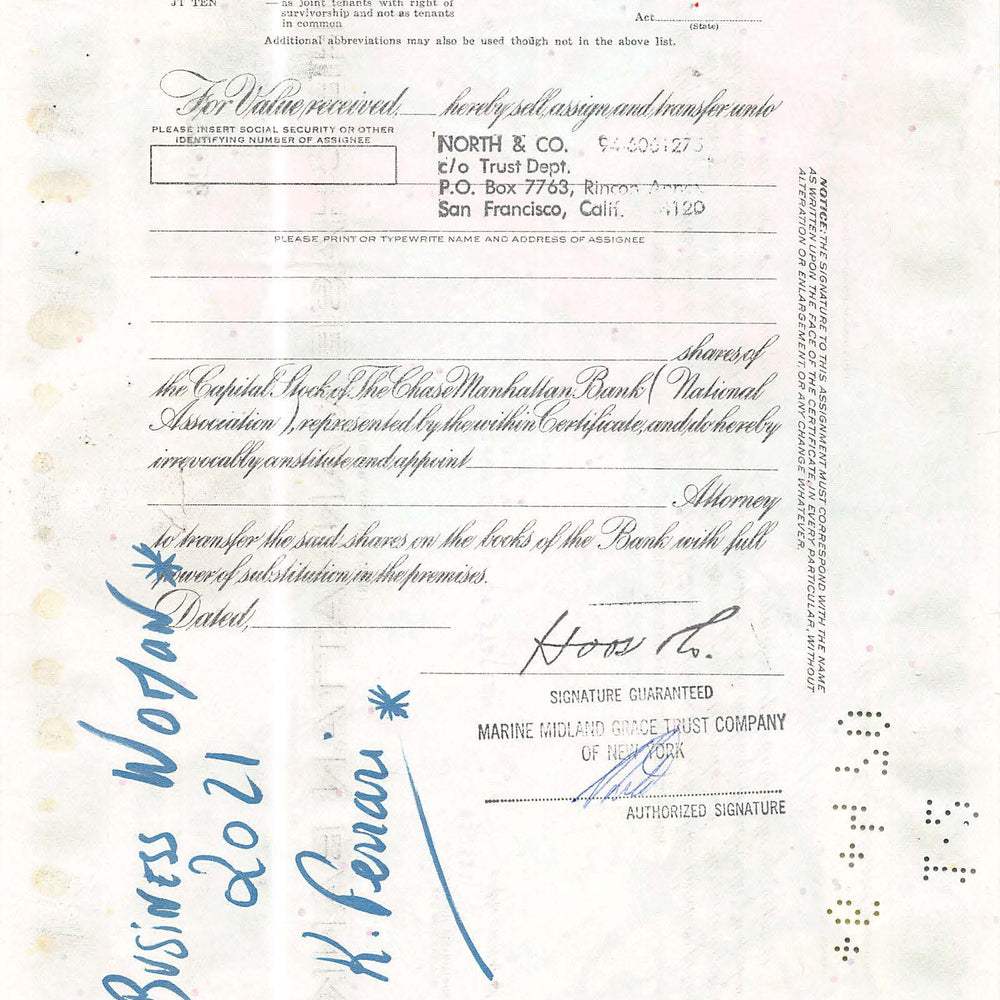 JT TEN
— as joint tenants with right of
survivorship and not as tenants
in common
Act
(State)
Additional abbreviations may also be used though not in the above list.
For Value received, hereby sell, assign and transfer unto
PLEASE INSERT SOCIAL SECURITY OR OTHER
IDENTIFYING NUMBER OF ASSIGNEE
NORTH & CO. 94-6061275
c/o Trust Dept.
P.O. Box 7763, Rincon Annex
San Francisco, Calif. 4120
PLEASE PRINT OR TYPEWRITE NAME AND ADDRESS OF ASSIGNEE
shares of
the Capital Stock of The Chase Manhattan Bank (National
Association), represented by the within Certificate, and do hereby
irrevocably constitute and appoint
Attorney
to transfer the said shares on the books of the Bank with full
power of substitution in the premises.
Dated,
Hoos Co.
SIGNATURE GUARANTEED
MARINE MIDLAND GRACE TRUST COMPANY
OF NEW YORK
AUTHORIZED SIGNATURE
NOTICE: THE SIGNATURE TO THIS ASSIGNMENT MUST CORRESPOND WITH THE NAME
AS WRITTEN UPON THE FACE OF THE CERTIFICATE, IN EVERY PARTICULAR, WITHOUT
ALTERATION OR ENLARGEMENT, OR ANY CHANGE WHATEVER.
BUSINESS WOMAN *
2021
K. Ferrari *